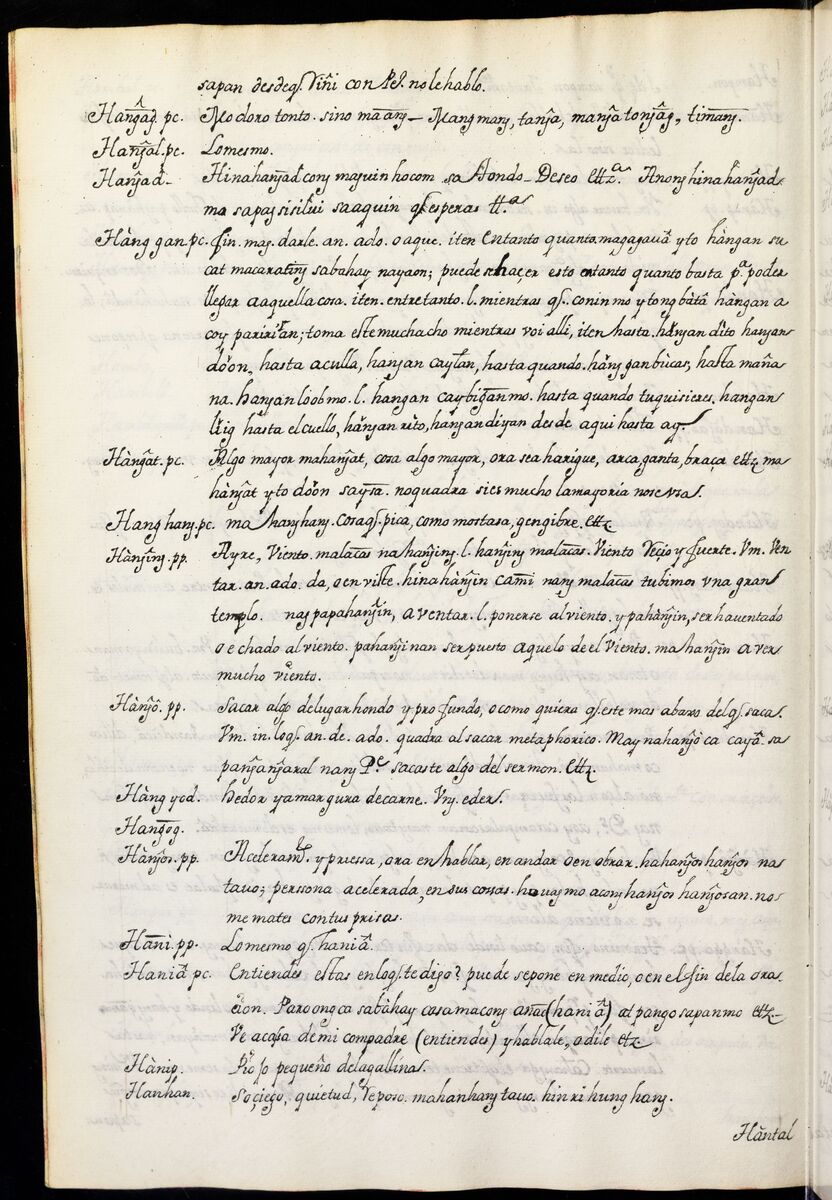 sapan desdeq̃. Riñi con Pẽ. nolehablo.
Hang̃ag̃. pc. Modoro tonto. sino maang̃ — Mangmang, tang̃a, mang̃a tong̃ag̃, timang̃.
Hang̃al. pc. Lo mesmo.
Hang̃ad — Hinahang̃ad cong maguin hocom sa tondo — Deseo ettz.ª Anong hinahang̃ad
mo sa pagsisilui sa aquin q̃ esperas tt.ª
Hàng gan pc. fin. mag. darle. an. ado. o aque. iten Entanto quanta magagauâ yto hàngan su
cat macarating sa bahay nayaon; puedeshaçer esto entanto quanto basta p.ª poder
llegar a aquella cosa. iten. entretanto. l. mientras q̃. conin mo ytong bâtâ hàngan a
coy paririan; toma este muchacho mientras voi alli, iten hasta. hang̃an dito hang̃an
dòon, hasta aculla, hang̃an caylan, hasta quando. hàng gan bùcas, hasta maña
na. hang̃an lòobmo. l. hang̃an caybigan mo. hasta quando tu quisieres, hangan
liig hasta el cuello, hang̃an rito, hang̃an diyan desde aqui hasta ay.
Hàng̃at. pc. Algo mayor mahang̃at, cosa algo mayor, ora sea harigue, arca, ganta, braça ettz ma
hàng̃at yto dòon saysa. no quadra si es mucho la mayoria no se vsa.
Hanghang. pc. mahanghang. cosa q̃. pica, como mostasa, gengibre. ettz
Hàng̃ing. pp. Ayre, Viento. malacas na hang̃ing. l. hang̃ing malacas. Viento reçio y fuerte. Vm. Ven
tar. an. ado. da, o en viste. hinahàng̃in cami nang malacas tubimos vna gran
templo. nag papahang̃in, aventar. l. ponerse al viento. y pahàng̃in, ser haventado
o echado al viento. pahang̃inan ser puesto aquelo de el Viento. mahang̃in aver
mucho viento.
Hàng̃ô. pp. Sacar algo de lugar hondo y profundo, o como quiera q̃. este mas abaxo del q̃. saca.
Vm. in. loq̃. an. de. ado. quadra al sacar metaphorico. May nahang̃ò ca cayâ sa
pang̃ang̃aral nang P.e sacaste algo del sermon. ettz.
Hàng yod. hedor y amargura de carne. Vm. eder.
Hang̃og.
Hàng̃os. pp. Aceleram.to y priessa, ora en hablar, en andar o en obrar. hahang̃oshang̃os na
tauo; perssona acelerada, en sus cossas. houag mo acong hang̃os hang̃osan. no
me mates con tus prisas.
Hani. pp. Lo mesmo q̃. haniâ.
Haniâ pc. Entiendes estas en loq̃. te digo? puede se pone en medio, o en el fin de la ora
çion. Paroong ca sabàhay casamacong anac (haniâ) at pangosapan mo ettz —
Ve a casa de mi compadre (entiendes) y hablale, o dile ettz
Hànip. Piojo pequeño de la gallinas.
Hanhan. Soçiego, quietud, reposo. mahanhang tauo. hinxi hunghang.
Hàntal